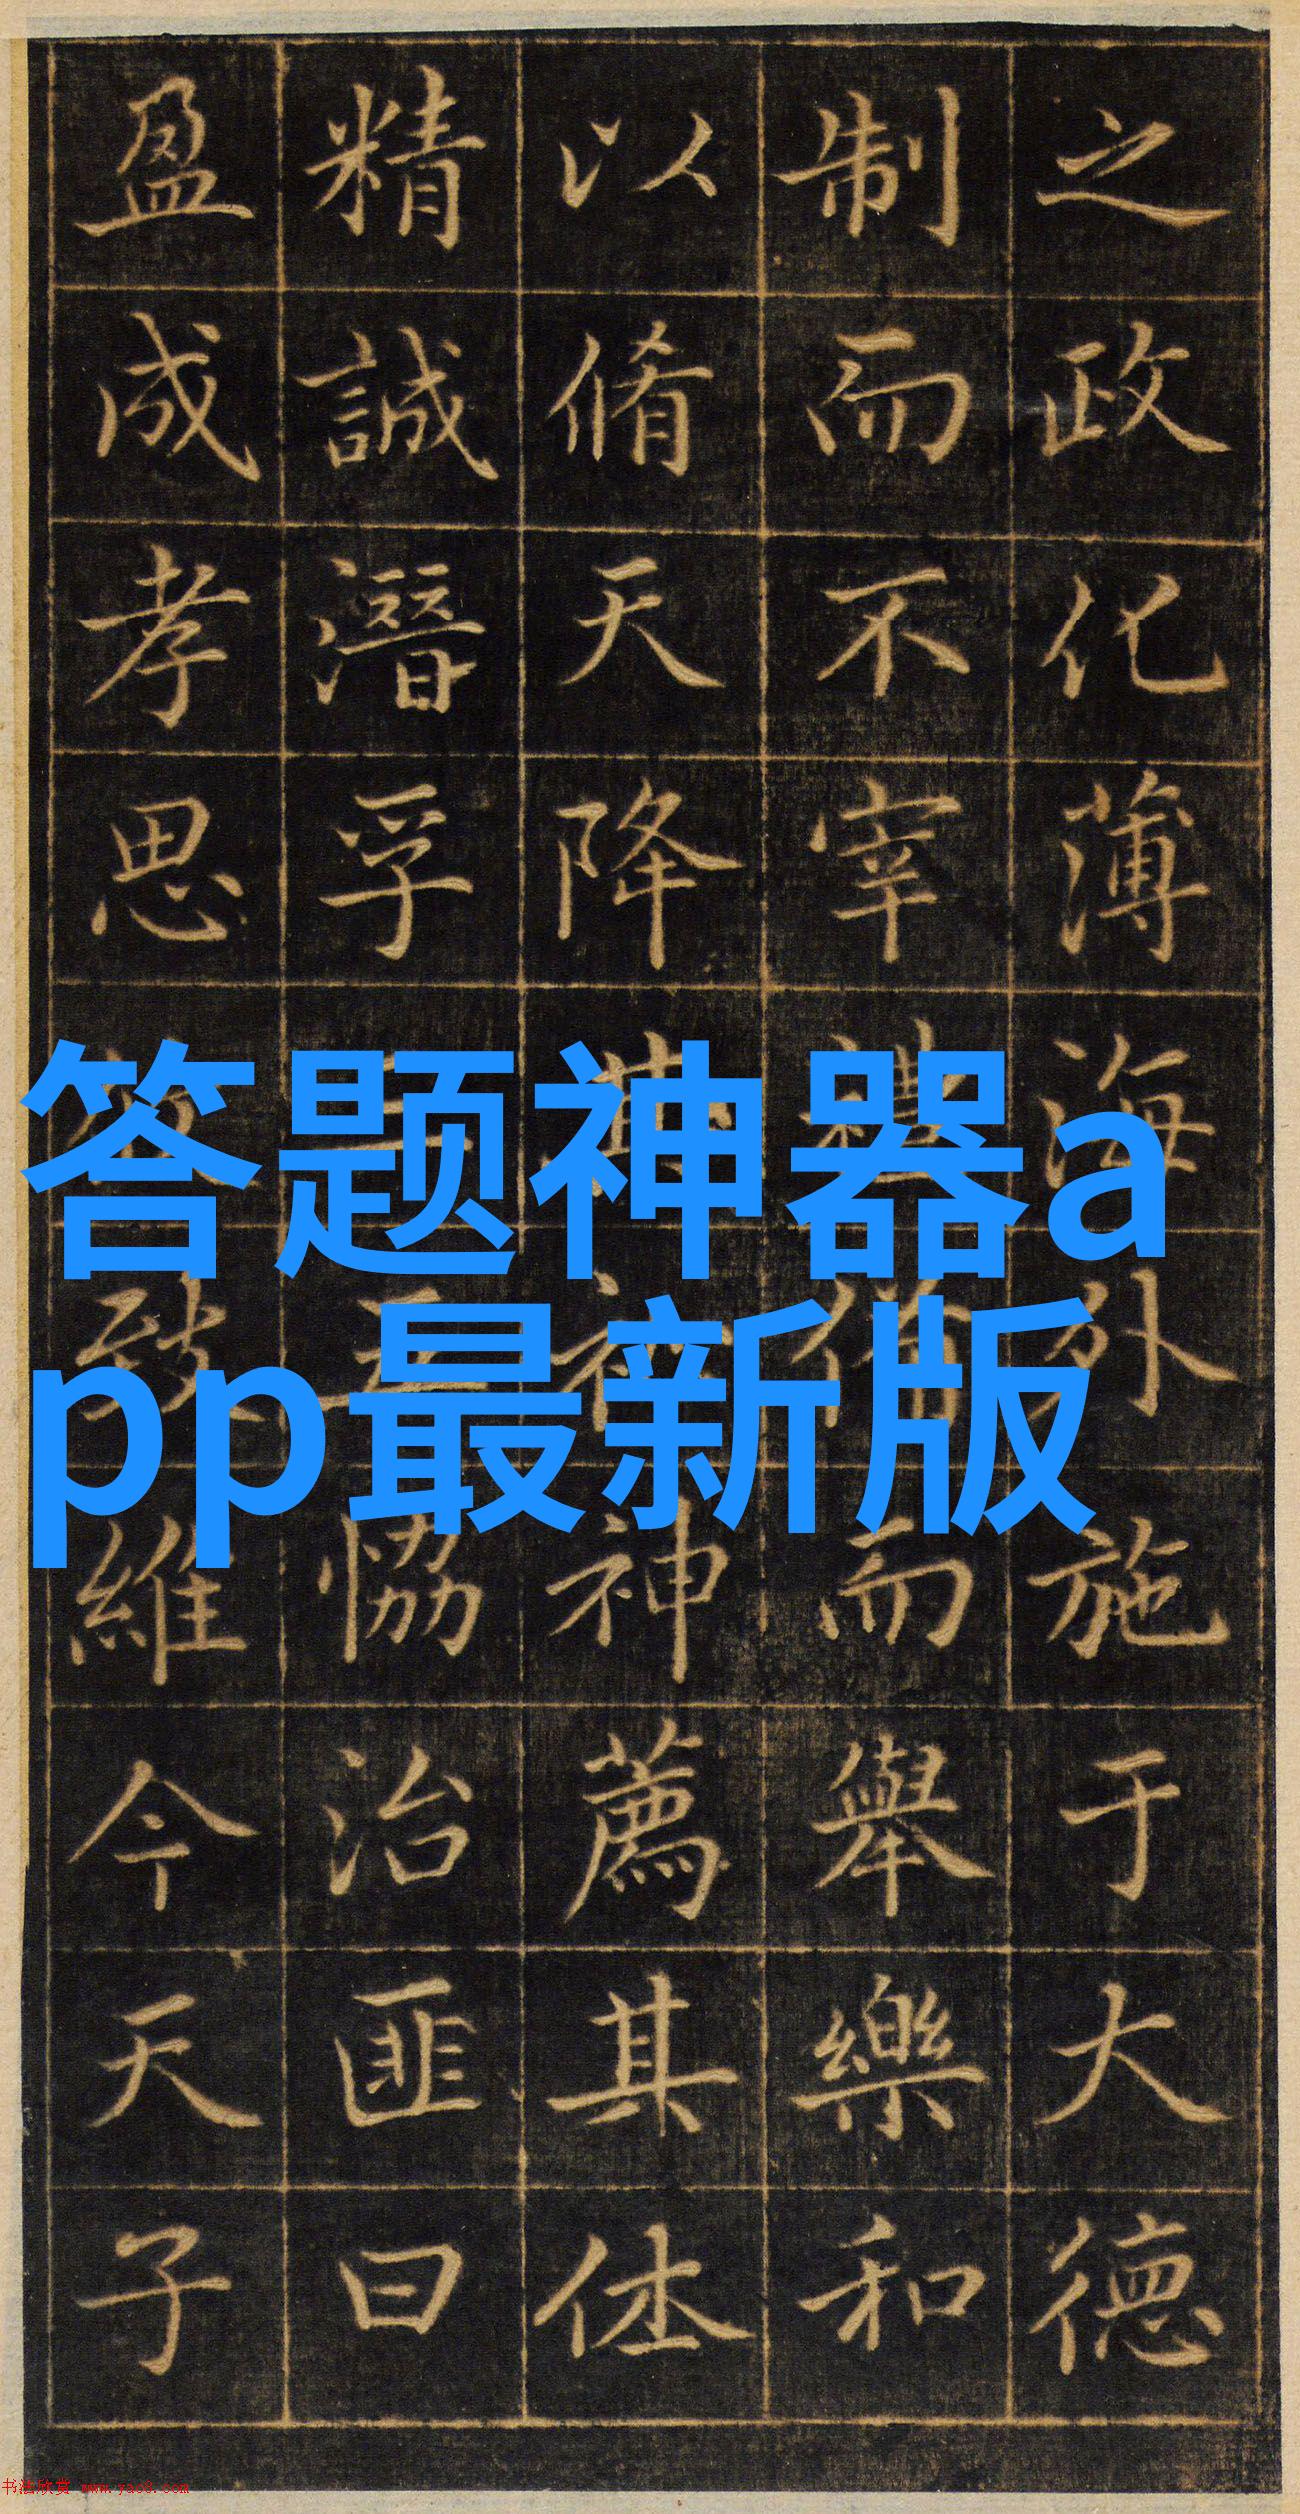 之政化薄海外施于大德
制而不宰禮備而舉樂和
以脩天降其神薦其休
精誠潛孚恊治匪曰
盈成孝思致維今天子
答题神器a
pp最新版
书法欣赏 www.yac8.com